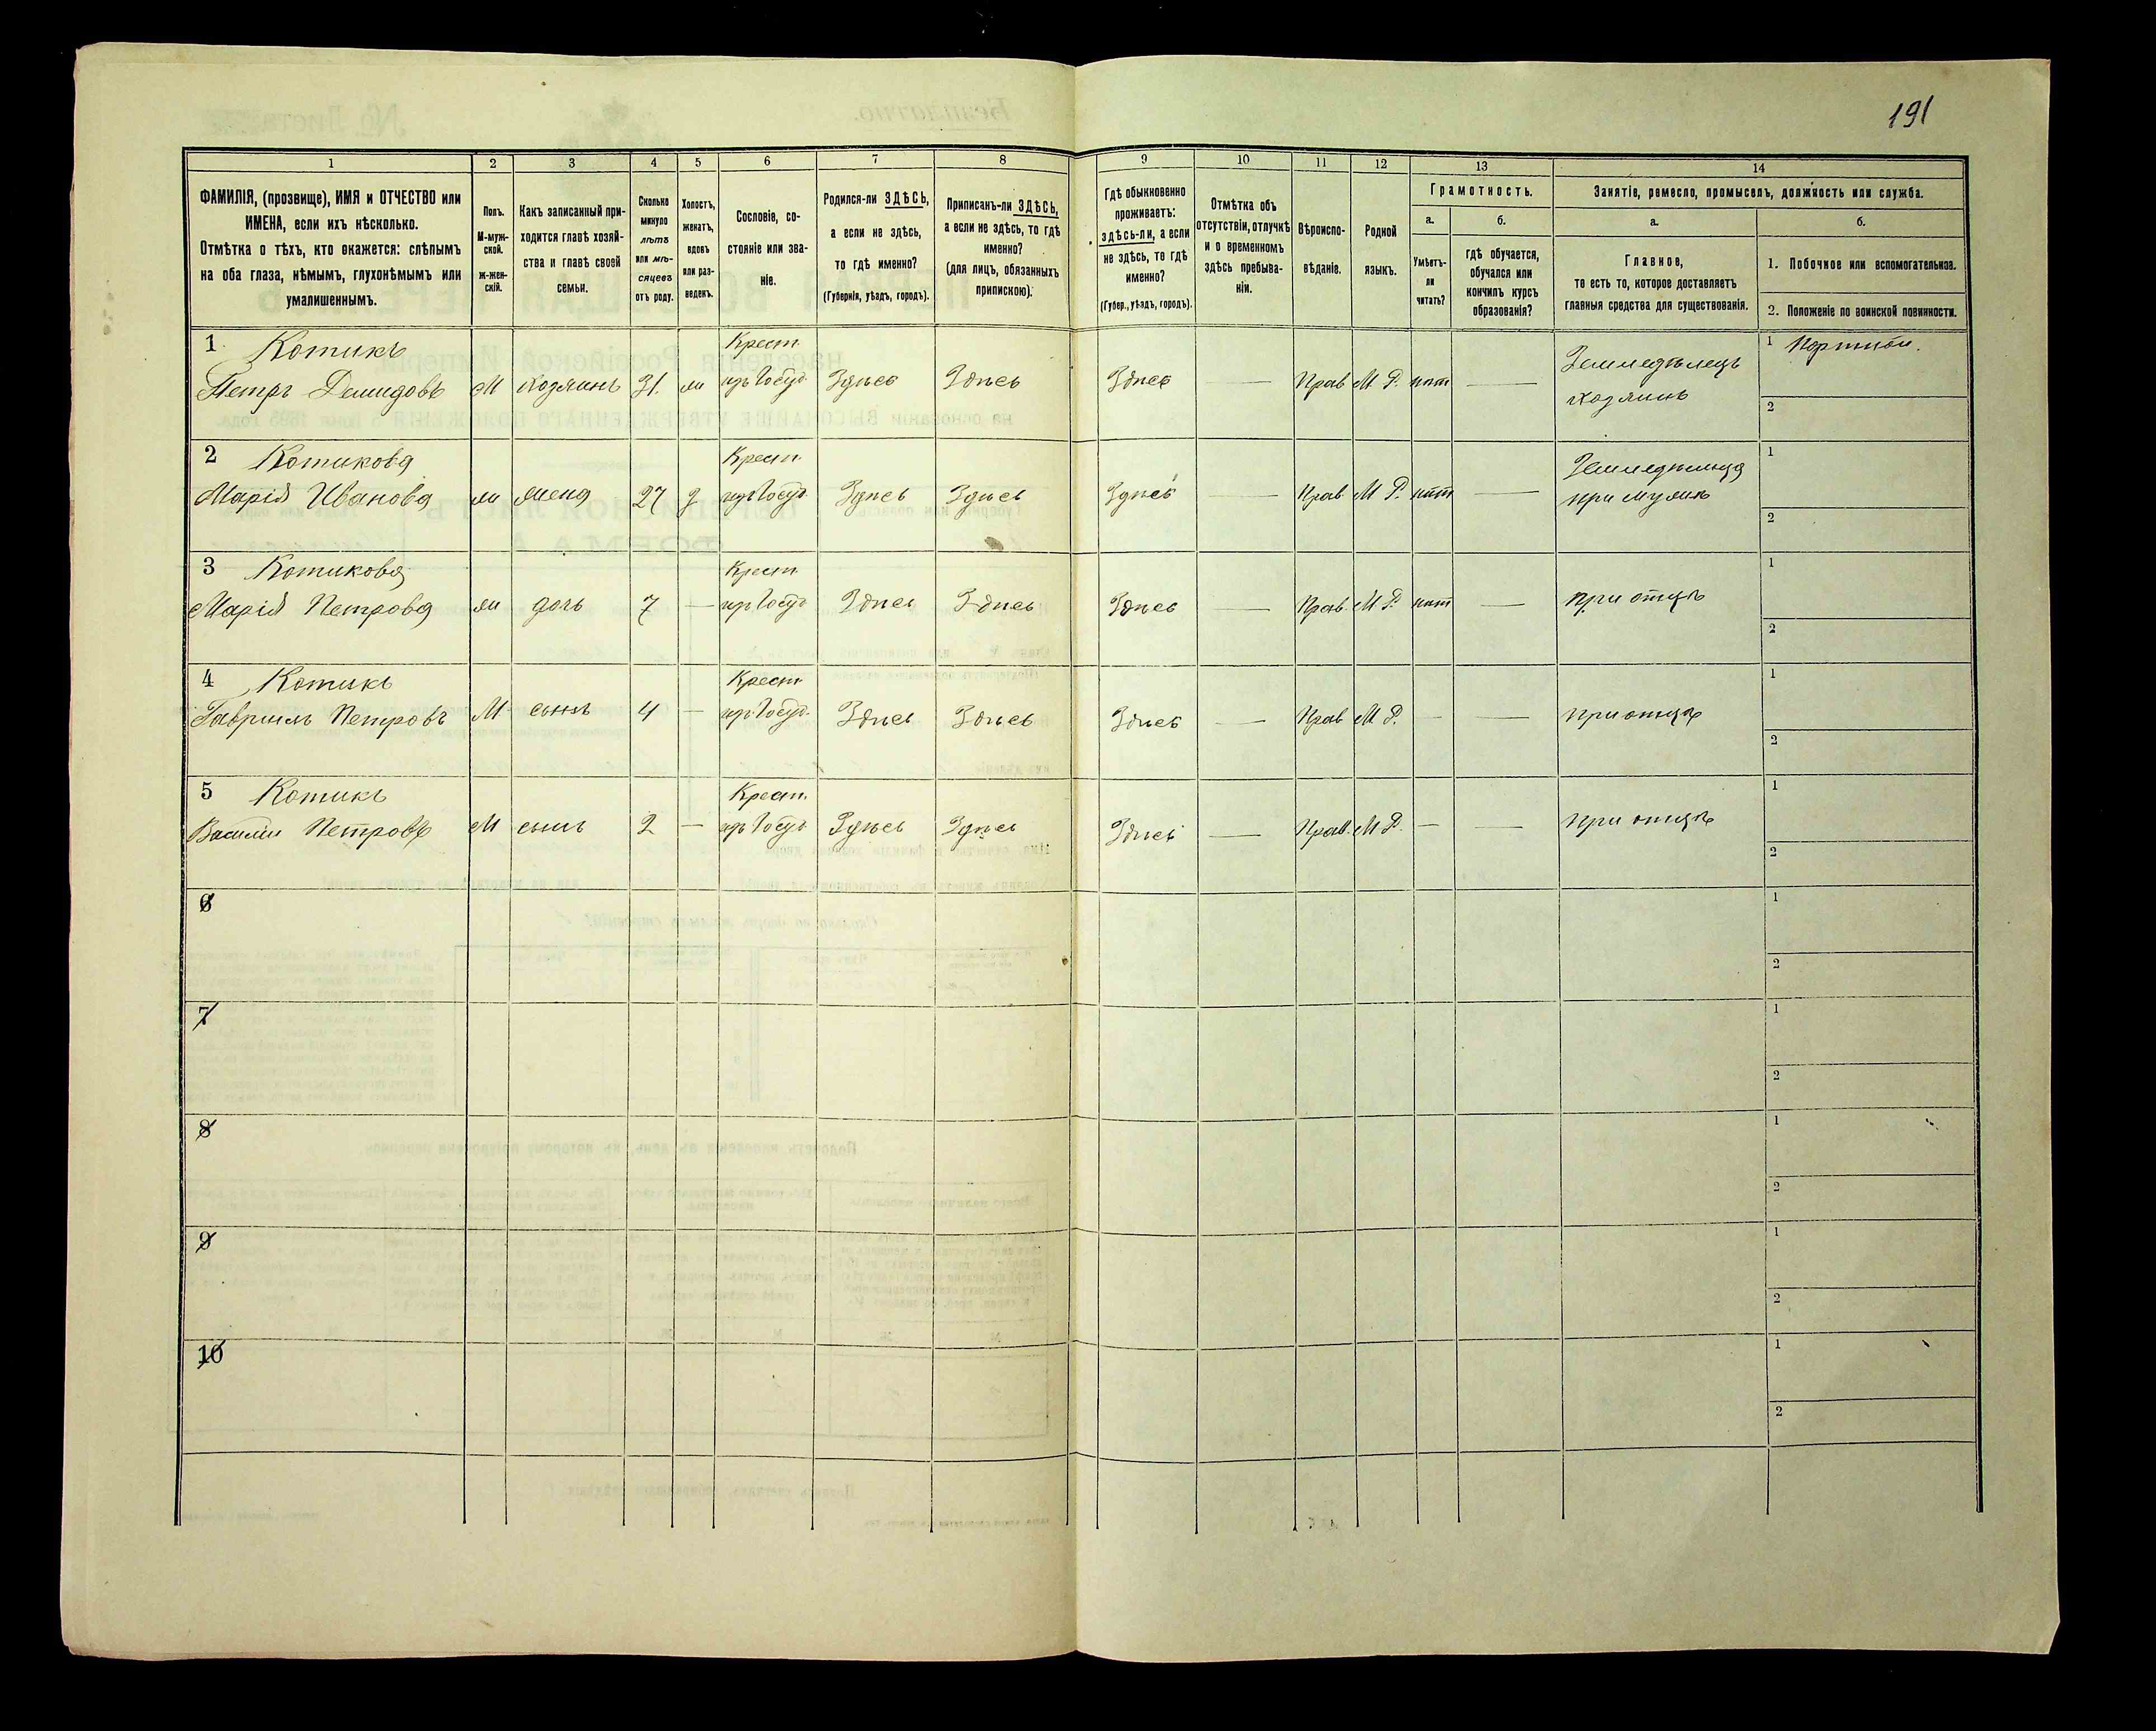 191
1 2 3 4 5 6 7 8 9 10 11 12 13 14
ФАМИЛІЯ, (прозвище), ИМЯ и ОТЧЕСТВО или
ИМЕНА, если ихъ нѣсколько.
Отмѣтка о тѣхъ, кто окажется: слѣпымъ
на оба глаза, нѣмымъ, глухонѣмымъ или
умалишеннымъ.
Полъ.
М-муж-
ской.
ж-жен-
скій.
Какъ записанный при-
ходится главѣ хозяй-
ства и главѣ своей
семьи.
Сколько
минуло
лѣтъ
или мѣ-
сяцевъ
отъ роду.
Холостъ,
женатъ,
вдовъ
или раз-
веденъ.
Сословіе, со-
стояніе или зва-
ніе.
Родился-ли ЗДѢСЬ,
а если не здѣсь,
то гдѣ именно?
(Губернія, уѣздъ, городъ).
Приписанъ-ли ЗДѢСЬ,
а если не здѣсь, то гдѣ
именно?
(для лицъ, обязанныхъ
припискою).
Гдѣ обыкновенно
проживаетъ:
здѣсь-ли, а если
не здѣсь, то гдѣ
именно?
(Губер., уѣздъ, городъ).
Отмѣтка объ
отсутствіи, отлучкѣ
и о временномъ
здѣсь пребыва-
ніи.
Вѣроиспо-
вѣданіе.
Родной
языкъ.
Грамотность.
а.
Умѣетъ-
ли
читать?
б.
гдѣ обучается,
обучался или
кончилъ курсъ
образованія?
Занятіе, ремесло, промыселъ, должность или служба.
а.
Главное,
то есть то, которое доставляетъ
главныя средства для существованія.
б.
1. Побочное или вспомогательное.
2. Положеніе по воинской повинности.
1 Котикъ Крест. 1 Портной.
Петръ Демидовъ М хозяинъ 31. ж изъ Госуд. Здѣсь Здѣсь Здѣсь — Прав М Р. нѣт — Земледѣлецъ
хозяинъ
2
2 Котикова Крест. Земледѣлица 1
Марія Иванова ж жена 27 з изъ Госуд. Здѣсь Здѣсь Здѣсь — Прав М Р. нѣт — при мужѣ
2
3 Котикова Крест. 1
Марія Петрова ж дочь 7 — изъ Госуд Здѣсь Здѣсь Здѣсь — Прав. М Р. нѣт — при отцѣ
2
4 Котикъ Крест. 1
Гавриилъ Петровъ М сынъ 4 — изъ Госуд. Здѣсь Здѣсь Здѣсь — Прав М Р. — — при отцѣ
2
5 Котикъ Крест. 1
Василій Петровъ М сынъ 2 — изъ Госуд Здѣсь Здѣсь Здѣсь — Прав. М Р. — — при отцѣ
2
6 1
2
7 1
2
8 1
2
9 1
2
10 1
2